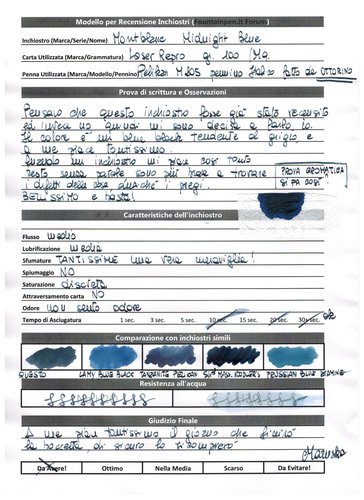 Modello per Recensione Inchiostri (Fountainpen.it Forum)
Inchiostro (Marca/Serie/Nome) Montblanc Midnight Blue
Carta Utilizzata (Marca/Grammatura) Laser Repro gr. 100 / Mq.
Penna Utilizzata (Marca/Modello/Pennino) Pelikan M805 pennino Italico fatto da OTTORINO
Prova di scrittura e Osservazioni
Pensavo che questo inchiostro fosse già stato recensito
ed invece no quindi mi sono decisa a farlo io.
Il colore è un blue black tendente al grigio e
a me piace tantissimo.
Quando un inchiostro mi piace così tanto
resto senza parole sono più brava a trovare
i difetti delle cose anziché i pregi.
BELLISSIMO e basta!
PROVA CROMATICA
SI FA COSÌ?
Caratteristiche dell'inchiostro
Flusso medio
Lubrificazione media
Sfumature TANTISSIME una vera meraviglia!
Spiumaggio NO
Saturazione discreta
Attraversamento carta NO
Odore non sento odore
Tempo di Asciugatura 1 sec. 3 sec. 5 sec. 10 sec. 15 sec. 20 sec. 30 sec. ok
Comparazione con inchiostri simili
QUESTO LAMY BLUE BLACK TANZANITE PELIKAN PRUSSIAN BLUE
Resistenza all'acqua
Giudizio Finale
A me piace tantissimo il giorno che finirò
la boccetta, di sicuro lo ricomprerò
Da Avere! Ottimo Nella Media Scarso Da Evitare!